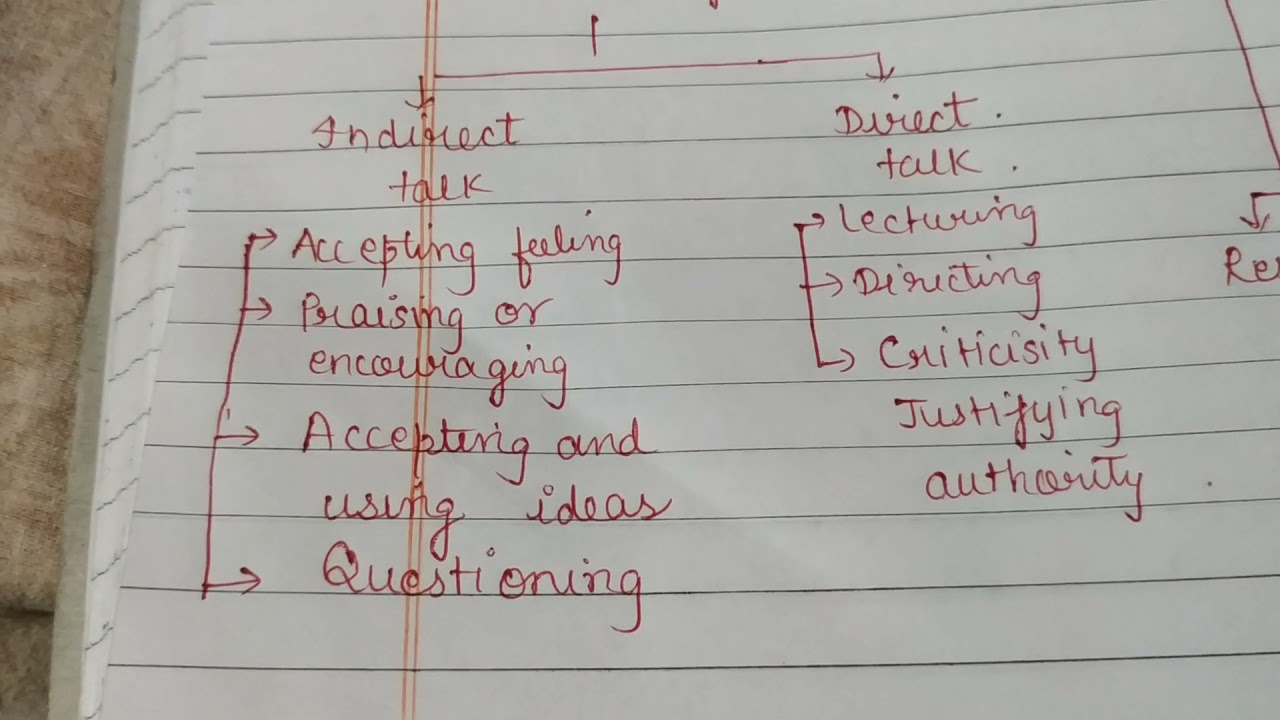 Indirect
talk
Accepting feeling
Praising or
encouraging
Accepting and
using ideas
Questioning
Direct.
talk.
Lecturing
Directing
Criticisity
Justifying
authority.